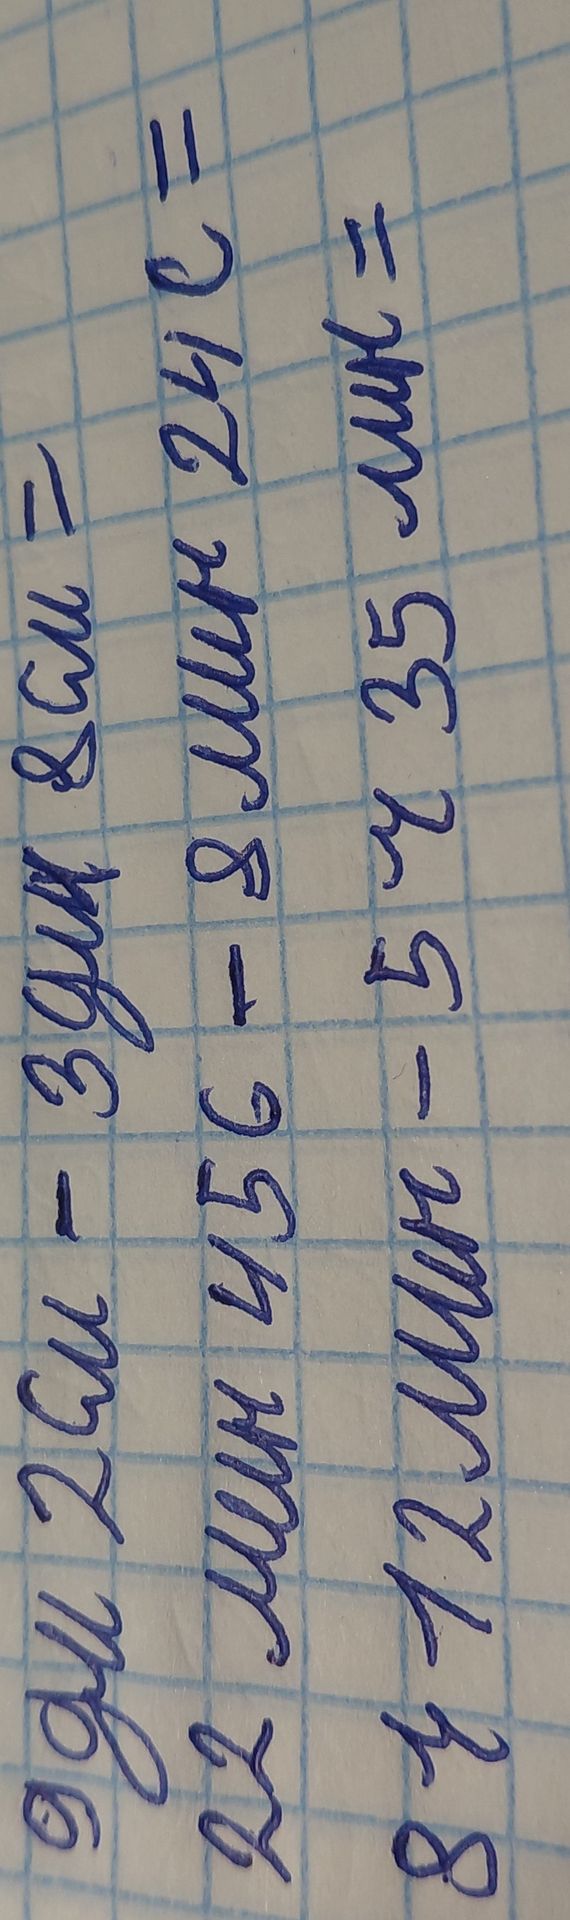 9дм 2см - 3дм 8см =
22 мин 45с - 8 мин 24с =
8ч 12мин - 5ч 35 мин =